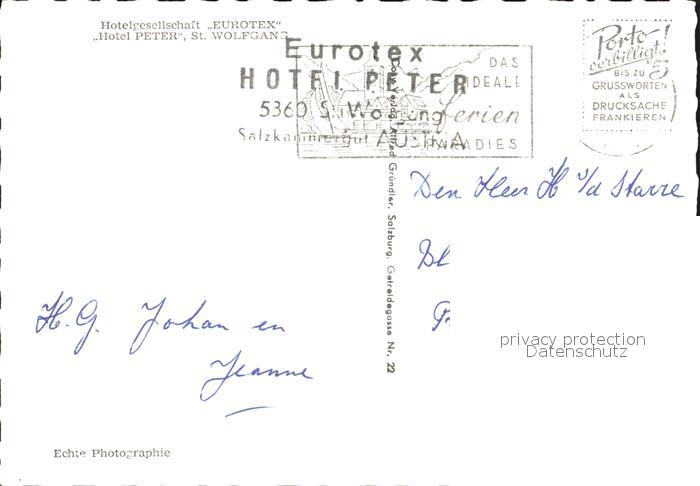 Hotelgesellschaft „EUROTEX“
„Hotel PETER“, St. WOLFGANG
Eurotex
HOTEL PETER
5360 St. Wolfgang
Salzkammergut AUSTRIA
DAS
IDEALE
Ferien
PARADIES
Porto!
verbilligt!
BIS ZU 5
GRUSSWORTEN
ALS
DRUCKSACHE
FRANKIEREN
Den Heer H v/d Starre
Bl
H.G. Johan en
Jeanne
Alfred Gründler, Salzburg, Getreidegasse Nr. 22
privacy protection
Datenschutz
Echte Photographie